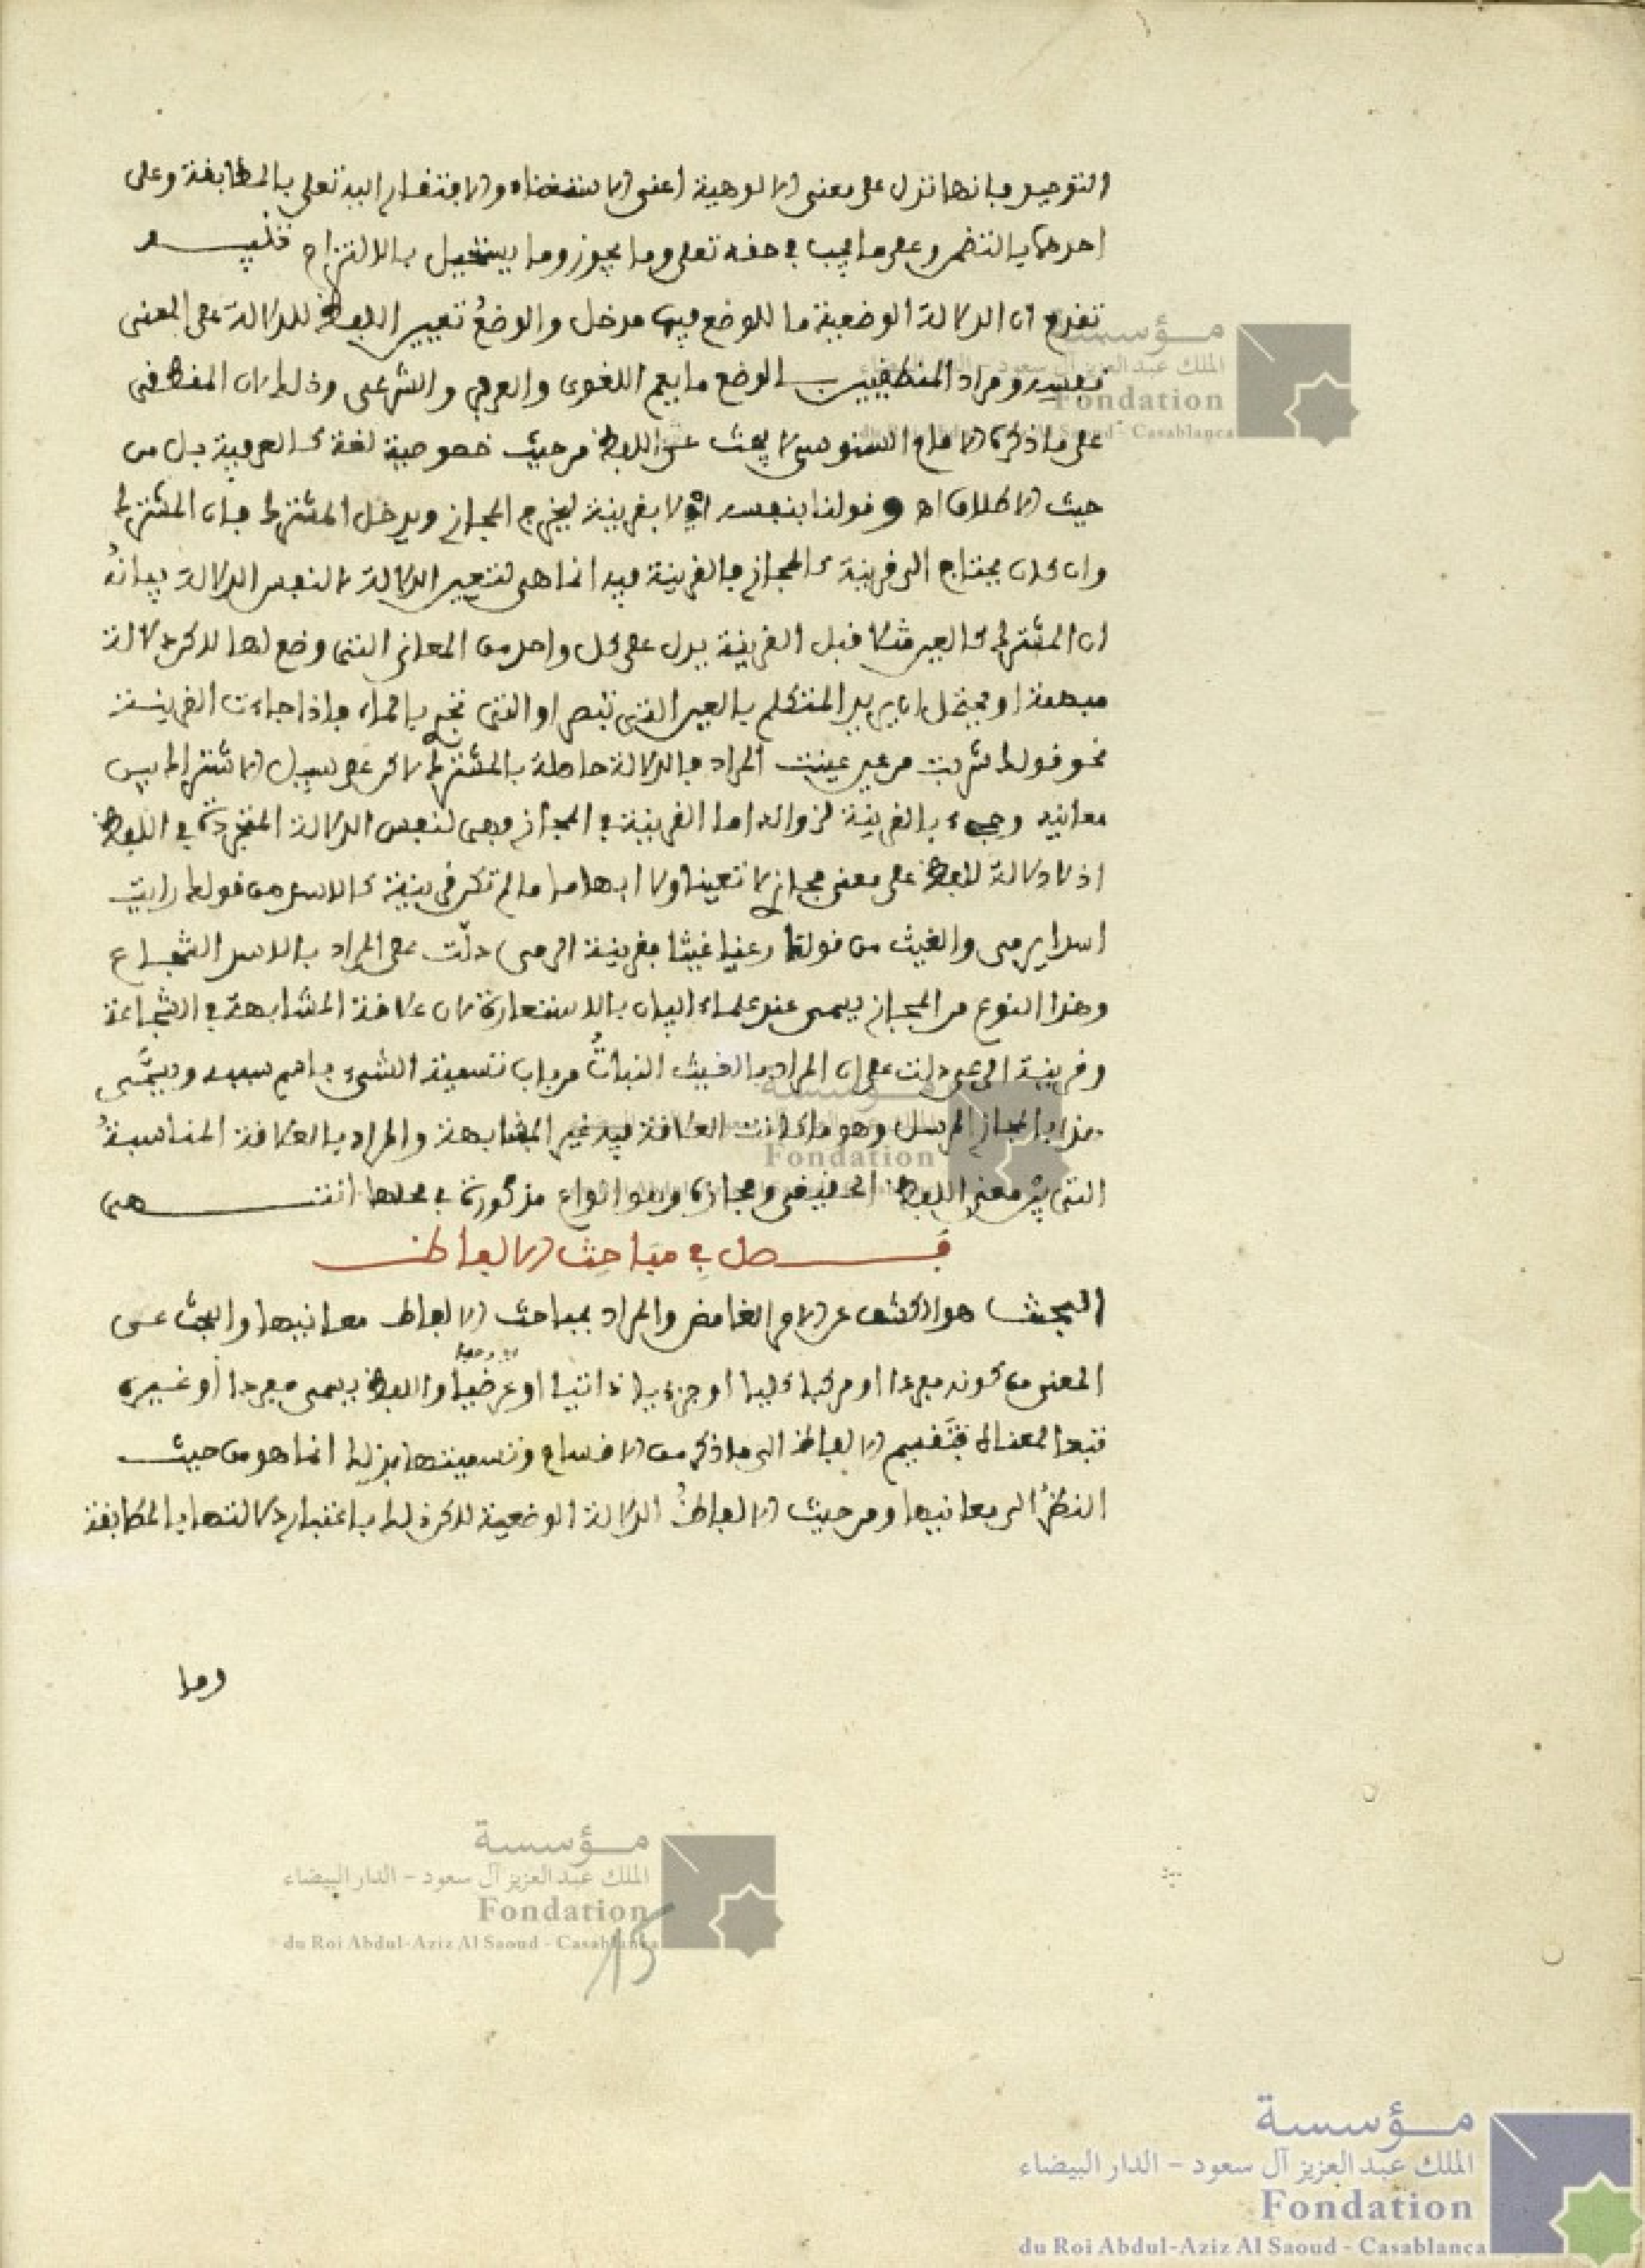 التوحيد فانها تدل على معنى الالوهية اعنى الاستغناء والافتقار اليه تعلى بالمطابقة وعلى
احدهما بالتضمن وعلى ما يجب في حقه تعلى وما يجوز وما يستحيل بالالتزام تنبيه
تقدم ان الدلالة الوضعية ما للوضع فيها مدخل والوضع تعيين اللفظ للدلالة على المعنى
بنفسه ومراد المنطقيين بالوضع ما يعم اللغوى والعرفي والشرعى وذلك لان المنطقى
على ما ذكره الامام السنوسى لا يبحث عن اللفظ من حيث خصوصية لغة كالعربية بل من
حيث الاطلاق اه وقولنا بنفسه اي لا بقرينة ليخرج المجاز ويدخل المشترك فان المشترك
وان كان يحتاج الى قرينة كالمجاز فالقرينة فيه انما هى لتعيين الدلالة لا لنفس الدلالة بيانه
ان المشترك كالعين مثلا قبل القرينة يدل على كل واحد من المعانى التى وضع لها لاكن دلالة
مبهمة او يحتمل ان يريد المتكلم بالعين التى تبصر او التى تجرى بالماء فاذا جاءت القرينة
نحو قولك شربت من عين عينت المراد فالدلالة حاصلة بالمشترك لاكن على سبيل الاشتراك بين
معانيه وجيء بالقرينة لزواله اما القرينة في المجاز فهى لنفس الدلالة في اللفظ
اذ لا دلالة للفظ على معنى مجازى لا تعينا ولا ابهاما ما لم تكن قرينة كالاسد من قولك رايت
اسدا يرمى والغيث من قولنا رعينا غيثا فقرينة الرمى دلّت على المراد بالاسد الشجاع
وهذا النوع من المجاز يسمى عند علماء البيان بالاستعارة لان علاقة المشابهة في الشجاعة
وقرينة الرعى دلت على ان المراد بالغيث النبات من باب تسمية الشيء باسم سببه ويسمَّى
هذا بالمجاز المرسل وهو ما كانت العلاقة فيه غير المشابهة والمراد بالعلاقة المناسبة
التى بين معنى اللفظ الحقيقى ومجازه وهو انواع مذكورة في محلها انتهى
فصل في مباحث الالفاظ
البحث هو الكشف عن الامر الغامض والمراد بمباحث الالفاظ معانيها والبحث عن
المعنى من كونه مفردا او مركبا كليا او جزءيا ذاتيا او عرضيا واللفظ يسمى مفردا أو غيره
تبعا لمعناه فتقسيم الالفاظ الى ما ذكر من الاقسام وتسميتها بذلك انما هو من حيث
النظر الى معانيها ومن حيث الالفاظ الدلالة الوضعية لاكن ذلك باعتبار دلالتها بالمطابقة
وما
15
مؤسسة
الملك عبد العزيز آل سعود - الدار البيضاء
Fondation
du Roi Abdul-Aziz Al Saoud - Casablanca